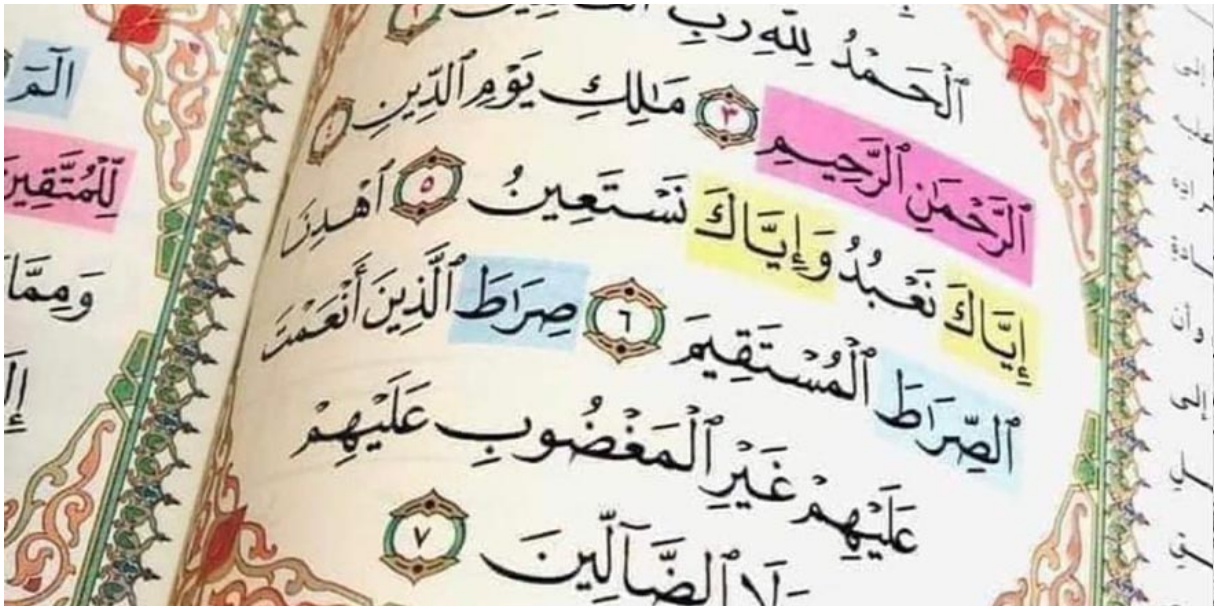 ٱلْحَمْدُ لِلَّهِ رَبِّ
ٱلرَّحْمَٰنِ ٱلرَّحِيمِ ٣ مَٰلِكِ يَوْمِ ٱلدِّينِ ٤
إِيَّاكَ نَعْبُدُ وَإِيَّاكَ نَسْتَعِينُ ٥ ٱهْدِنَا
ٱلصِّرَاطَ ٱلْمُسْتَقِيمَ ٦ صِرَاطَ ٱلَّذِينَ أَنْعَمْتَ
عَلَيْهِمْ غَيْرِ ٱلْمَغْضُوبِ عَلَيْهِمْ
وَلَا ٱلضَّآلِّينَ ٧
الٓمٓ
لِّلْمُتَّقِينَ
وَمِمَّا